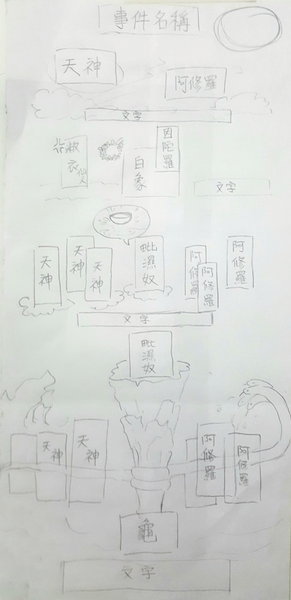 事件名稱
天神
阿修羅
文字
敝衣仙人
白象
因陀羅
文字
天神
天神
天神
毗濕奴
阿修羅
阿修羅
阿修羅
文字
毗濕奴
天神
天神
阿修羅
阿修羅
龜
文字